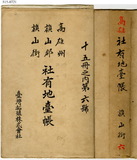 高雄州
旗山郡
旗山街
社有地臺帳
十五冊之內第六號
臺灣製糖株式會社
高雄州
旗山郡
旗山街
社有地臺帳